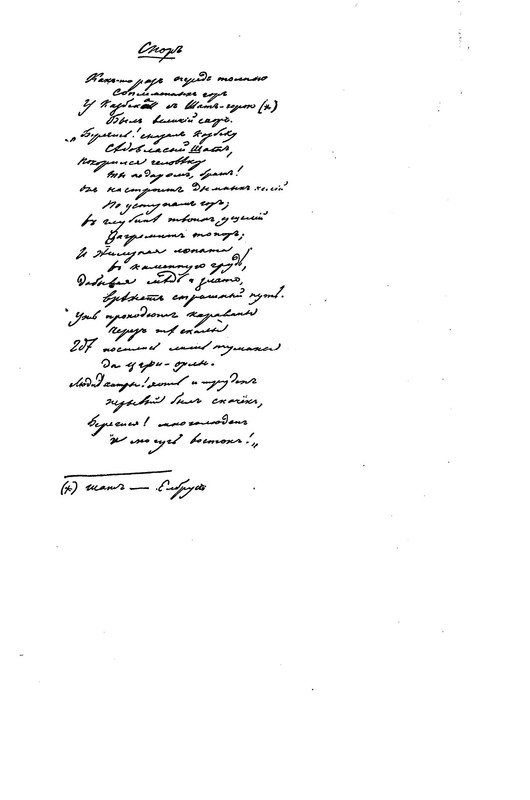 Споръ
Какъ-то разъ передъ толпою
Соплеменныхъ горъ
У Казбека съ Шатъ-горою (*)
Былъ великій споръ.
"Берегись! сказалъ Казбеку
Сѣдовласый Шатъ,
Покорился человѣку
Ты недаромъ, братъ!
Онъ настроитъ дымныхъ келій
По уступамъ горъ;
Въ глубинѣ твоихъ ущелій
Загремитъ топоръ;
И желѣзная лопата
Въ каменную грудь,
Добывая мѣдь и злато,
Врѣжетъ страшный путь.
Ужъ проходятъ караваны
Черезъ тѣ скалы
Гдѣ носились лишь туманы
Да цари-орлы.
Люди хитры! хоть и труденъ
Первый былъ скачекъ,
Берегися! многолюденъ
И могучъ востокъ!"
(*) Шатъ — Елбрусъ